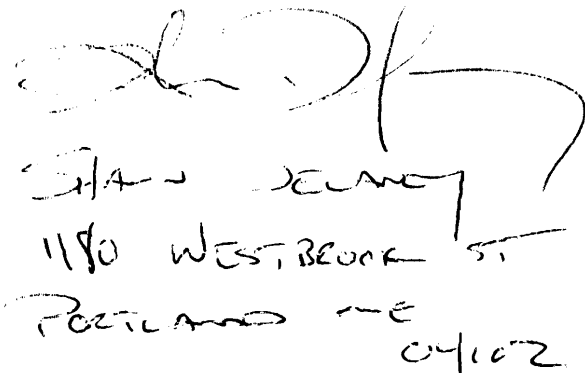 SHAWN DELANEY
1180 WESTBROOK ST
PORTLAND ME
04102